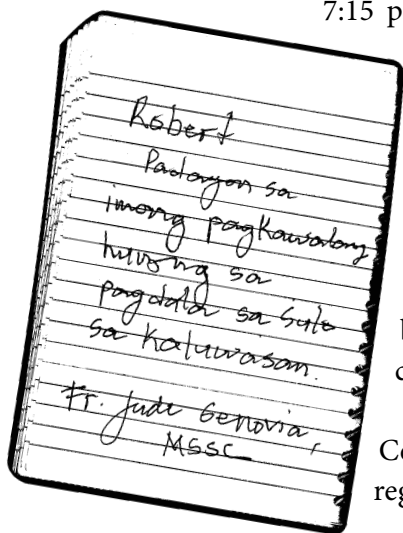 7:15 p
Robert
Padayon sa
imong pagkawalay
hunong sa
pagdala sa Sulo
sa Kaluwasan.
Fr. Jude Genovia,
MSSC
Co
reg